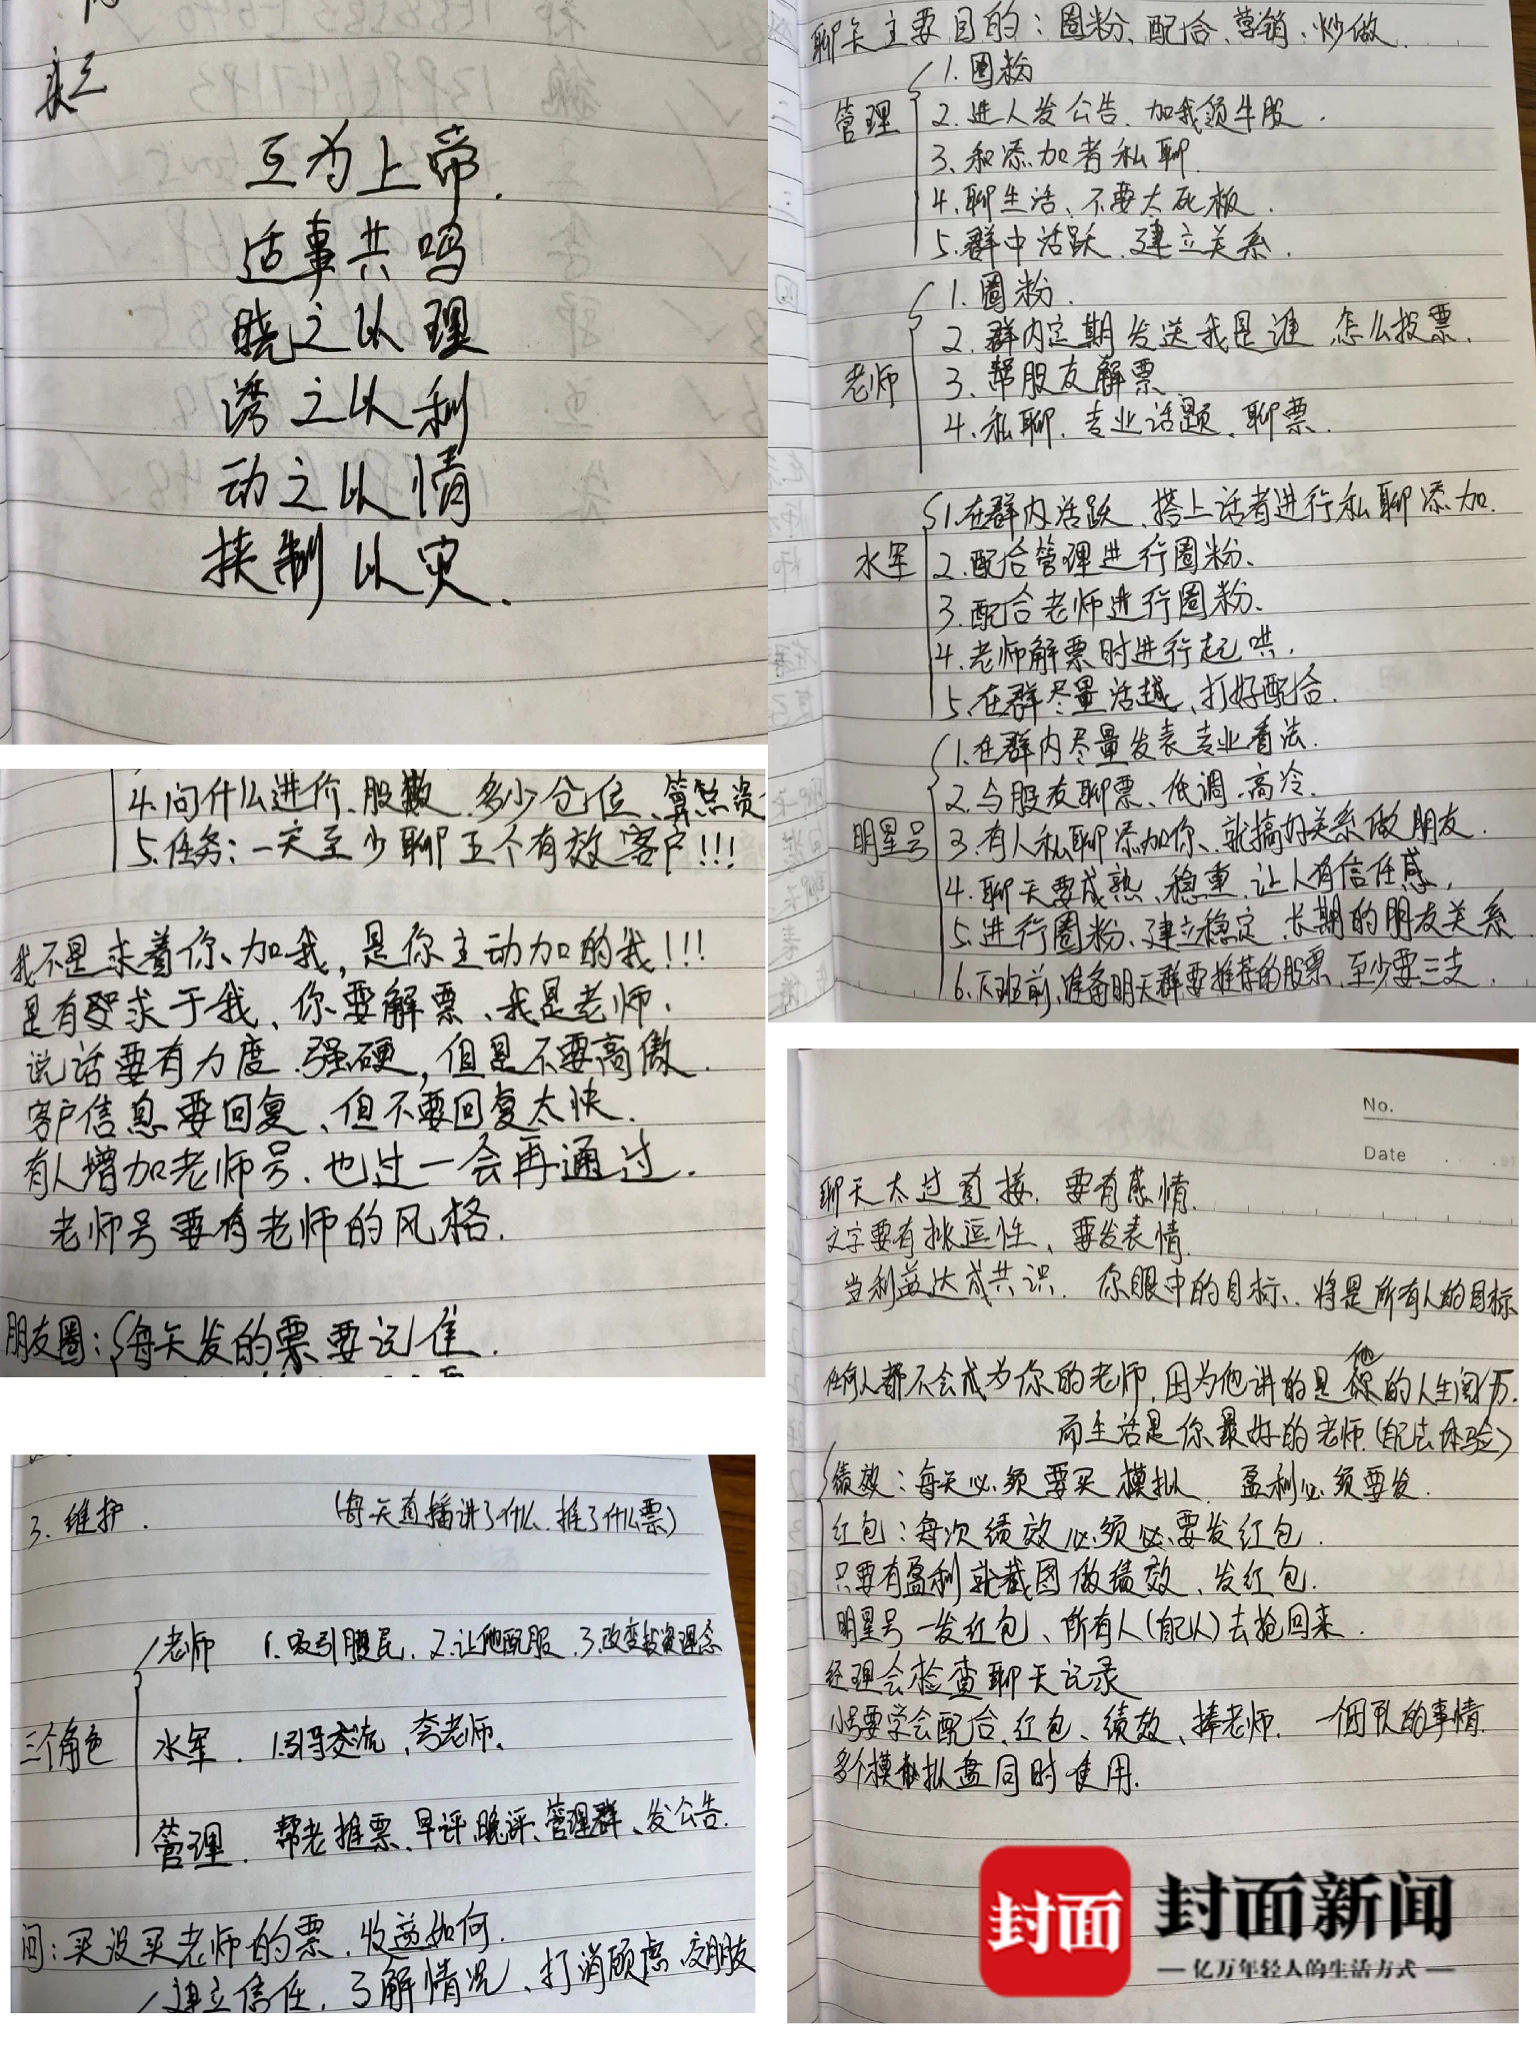 互为上帝.
适事共鸣
晓之以理
诱之以利
动之以情
挟制以灾.
聊天主要目的：圈粉、配合、营销、炒做.
管理
1.圈粉
2.进人发公告.加我领牛股.
3.和添加者私聊
4.聊生活、不要太死板.
5.群中活跃.建立关系.
老师
1.圈粉.
2.群内定期发送我是谁.怎么投票.
3.帮股友解票
4.私聊.专业话题、聊票.
水军
1.在群内活跃、搭上话者进行私聊添加.
2.配合管理进行圈粉、
3.配合老师进行圈粉、
4.老师解票时进行起哄.
5.在群尽量活越、打好配合.
明星号
1.在群内尽量发表专业看法.
2.与股友聊票、低调.高冷.
3.有人私聊添加你、就搞好关系做朋友.
4.聊天要成熟、稳重.让人有信任感.
5.进行圈粉、建立稳定.长期的朋友关系
6.下班前、准备明天群要推荐的股票、至少要三支.
4.问什么进价、股数.多少仓位、算总资
5.任务：一天至少聊五个有效客户!!!
我不是求着你、加我，是你主动加的我!!!
是有求于我、你要解票、我是老师.
说话要有力度.强硬，但是不要高傲.
客户信息要回复、但不要回复太快.
有人增加老师号、也过一会再通过.
老师号要有老师的风格.
朋友圈：每天发的票要记住.
No.
Date
聊天太过直接.要有感情.
文字要有挑逗性、要发表情.
当利益达成共识.你眼中的目标、将是所有人的目标
任何人都不会成为你的老师.因为他讲的是他的人生阅历.
而生活是你最好的老师.(配法体验)
绩效：每天必须要买模拟 盈利必须要发.
红包：每次绩效必须必要发红包.
只要有盈利就截图做绩效、发红包.
明星号一发红包、所有人(自己人)去抢回来.
经理会检查聊天记录
小号要学会配合、红包、绩效、捧老师.一个团队的事情.
多个模拟盘同时使用.
3.维护. (每天直播讲了什么.推了什么票)
三个角色
老师 1.吸引股民.2.让他配服.3.改变投资理念
水军.1.引导交流、夸老师.
管理.帮老推票、早评.晚评、管理群、发公告.
问：买没买老师的票.收益如何.
建立信任.了解情况、打消顾虑.交朋友
封面
封面新闻
亿万年轻人的生活方式